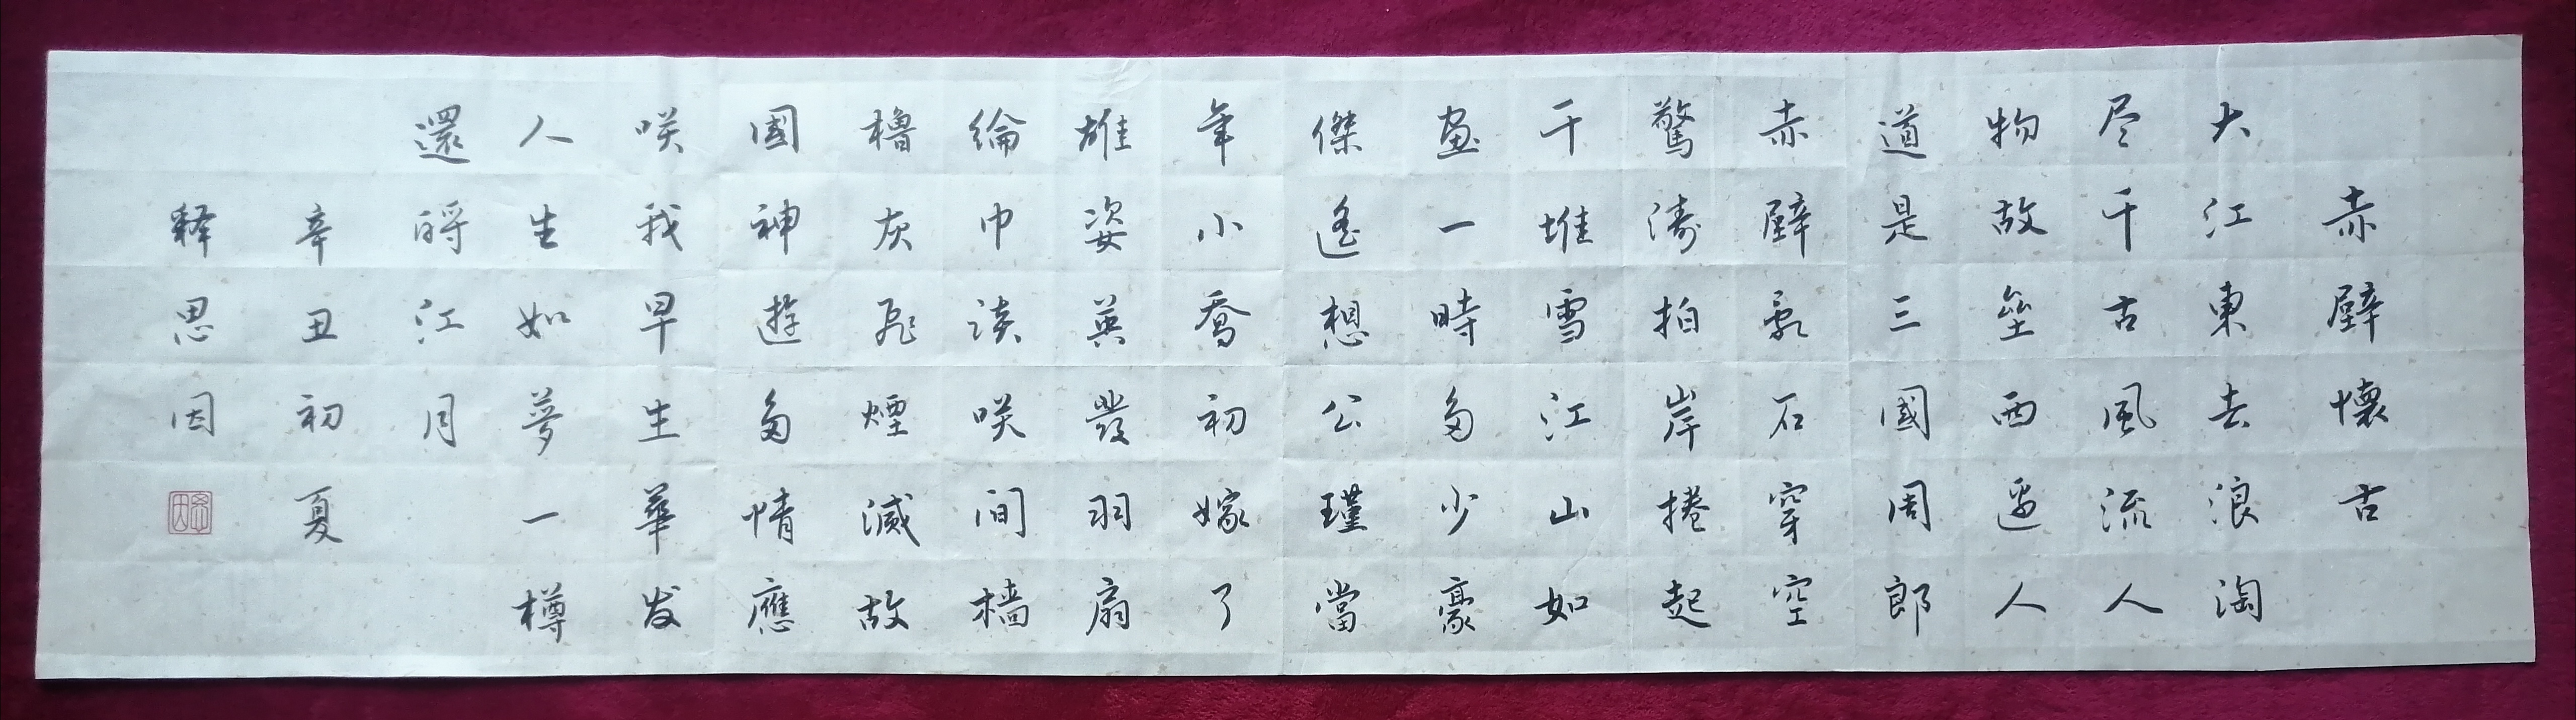 赤壁懷古
大江東去浪淘
尽千古風流人
物故壘西邊人
道是三國周郎
赤壁亂石穿空
驚濤拍岸捲起
千堆雪江山如
畫一時多少豪
傑遙想公瑾當
年小喬初嫁了
雄姿英發羽扇
綸巾談咲間檣
櫓灰飛煙滅故
國神遊多情應
咲我早生華发
人生如夢一樽
還酹江月
辛丑初夏
释思因